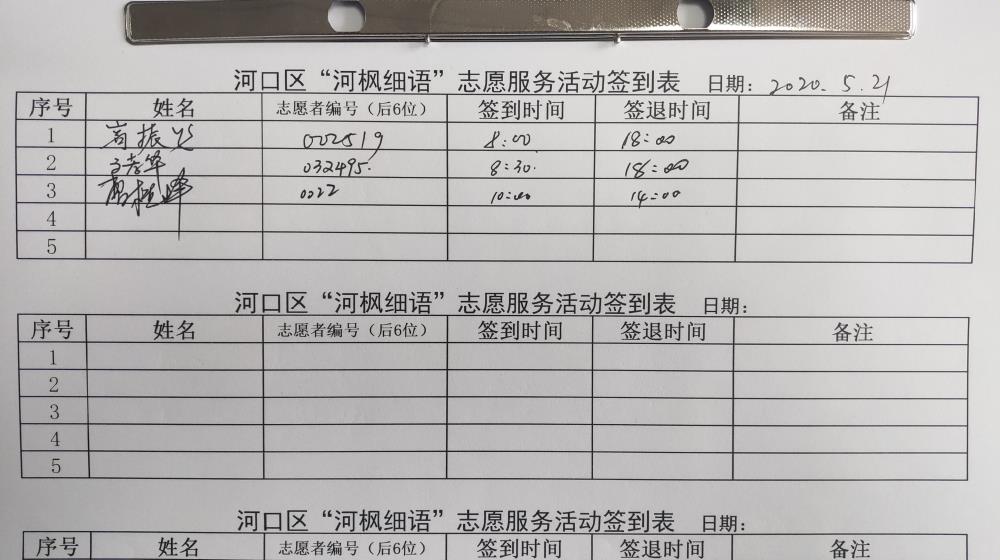 河口区“河枫细语”志愿服务活动签到表 日期：2020.5.21
序号 姓名 志愿者编号（后6位） 签到时间 签退时间 备注
1 高振 002519 8:00 18:00
2 032495. 8:30. 18:00
3 0022 10:00 14:00
4
5
河口区“河枫细语”志愿服务活动签到表 日期：
序号 姓名 志愿者编号（后6位） 签到时间 签退时间 备注
1
2
3
4
5
河口区“河枫细语”志愿服务活动签到表 日期：
序号 姓名 志愿者编号（后6位） 签到时间 签退时间 备注